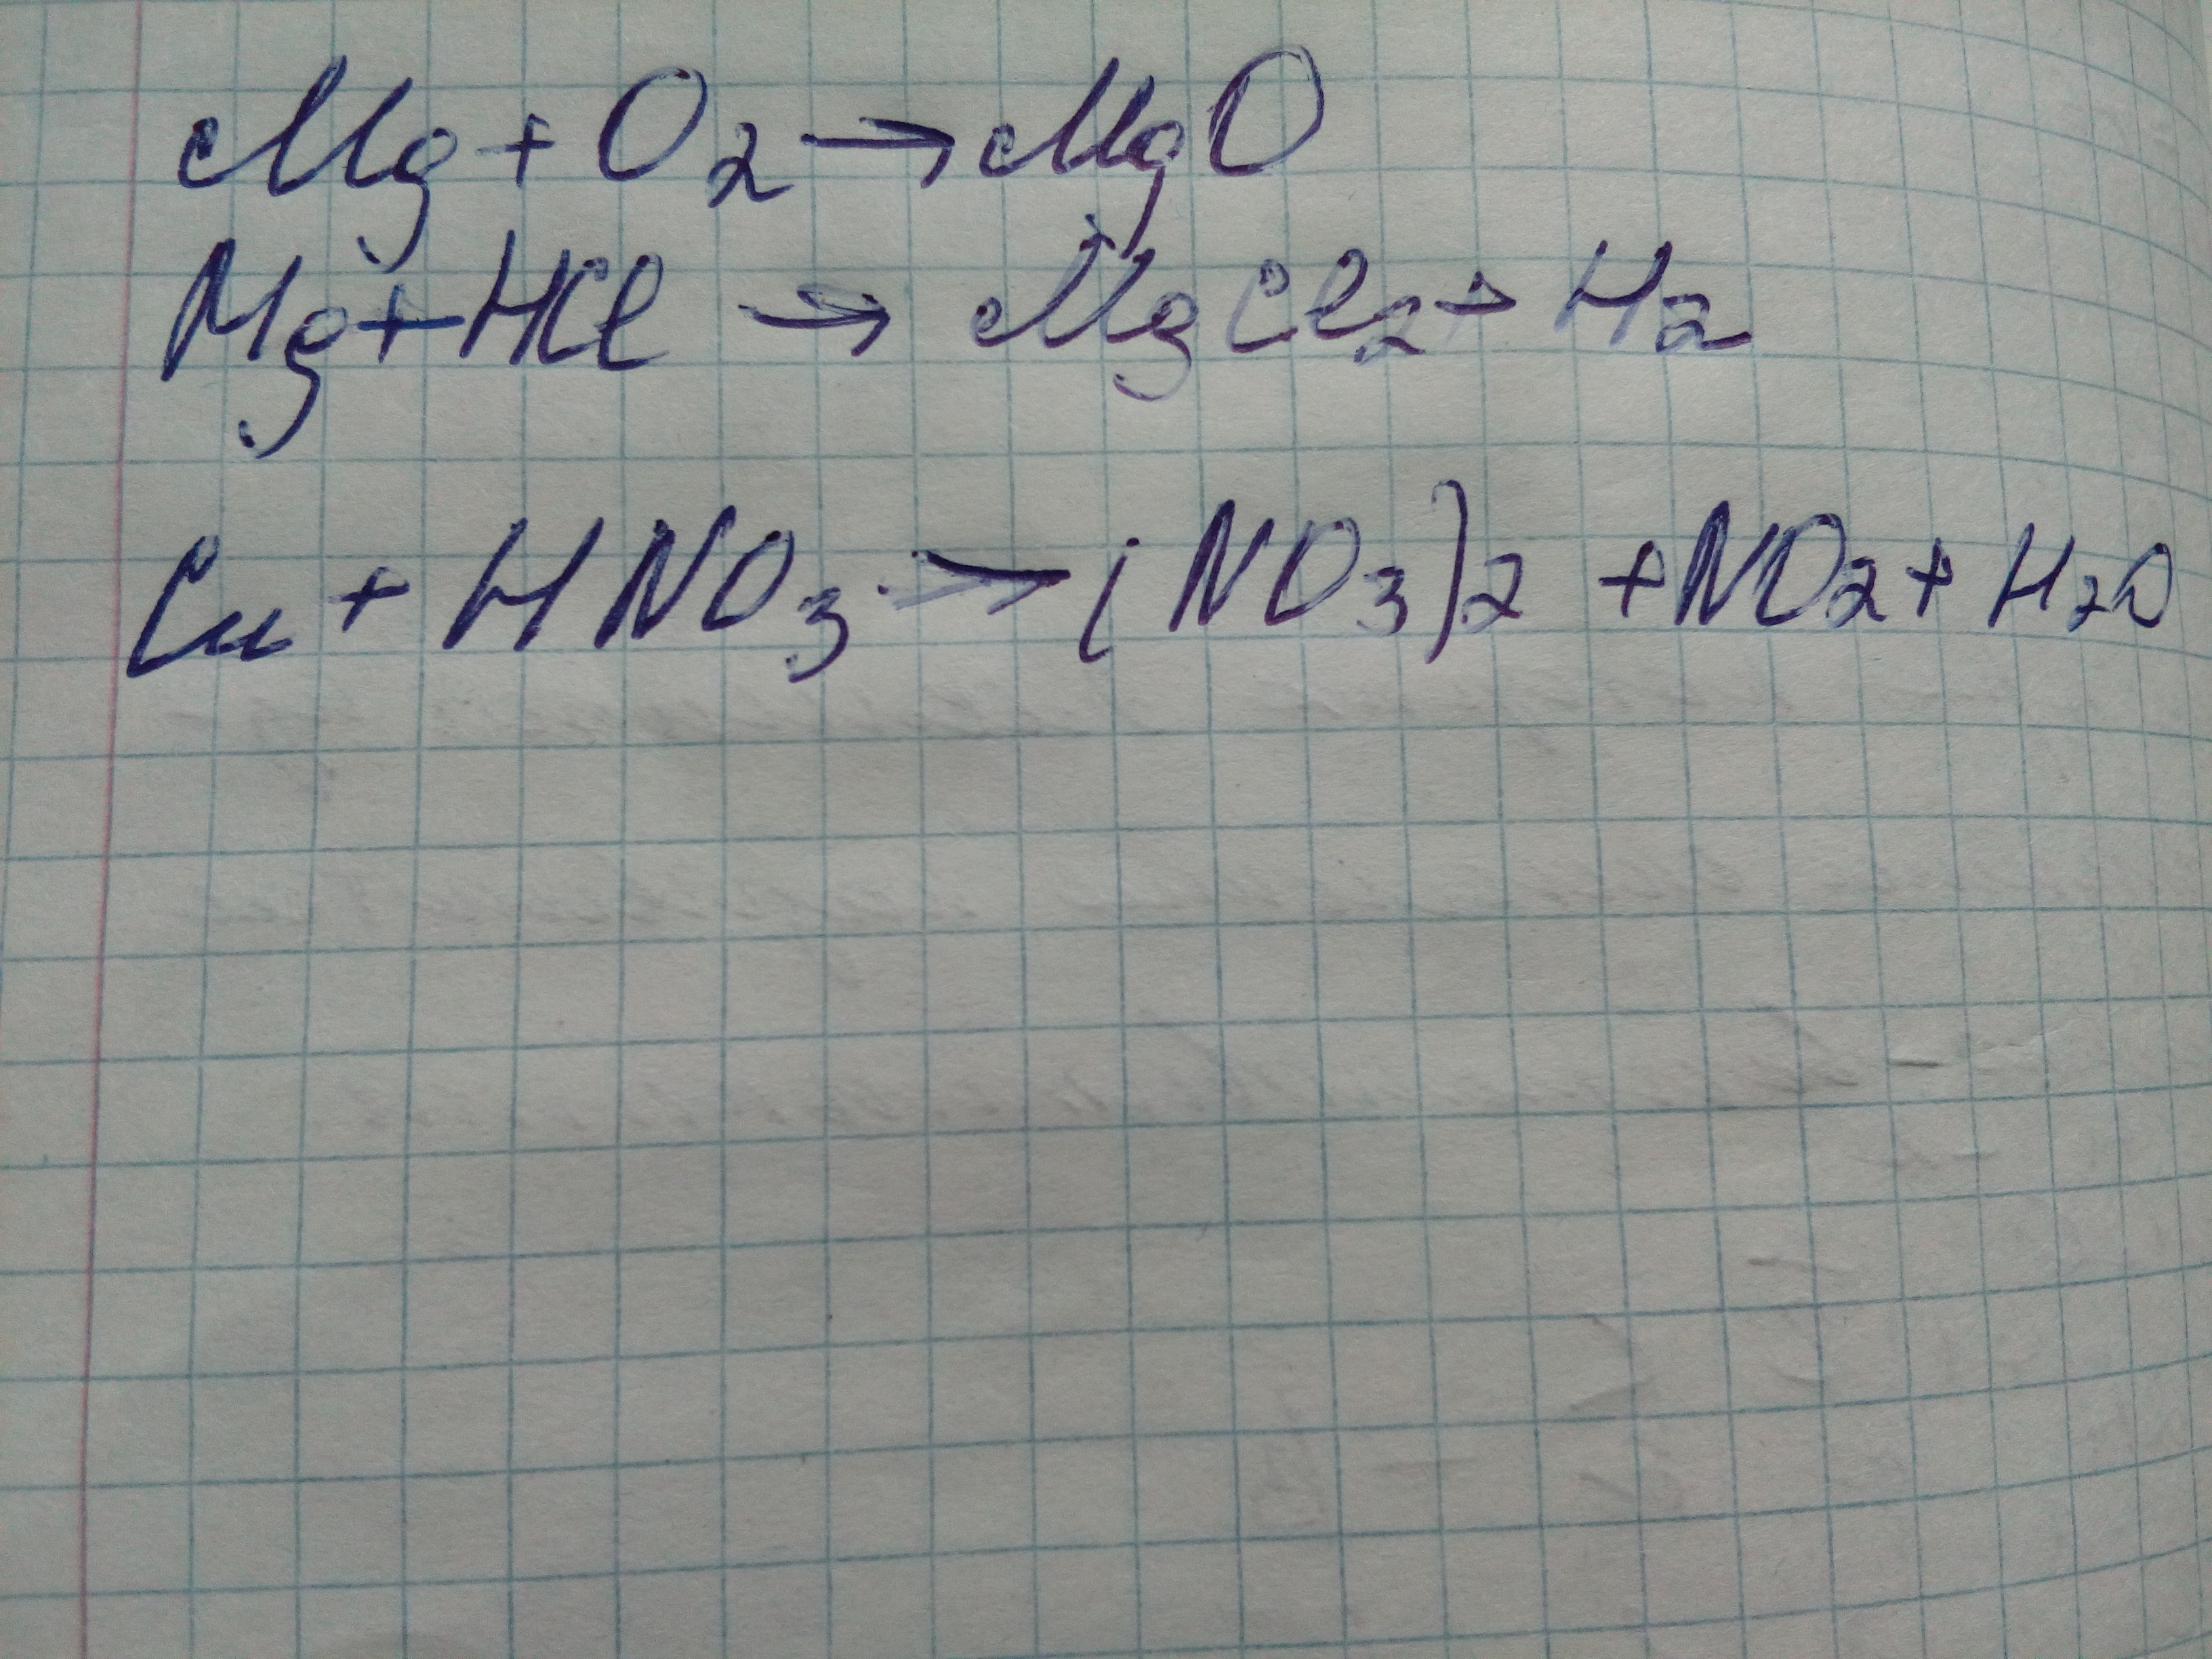 Mg + O₂ → MgO
Mg + HCl → MgCl₂ + H₂
Cu + HNO₃ → (NO₃)₂ + NO₂ + H₂O